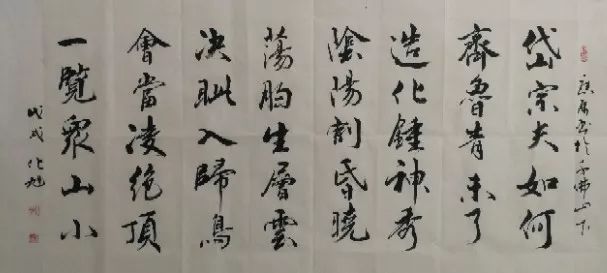 岱宗夫如何
齊魯青未了
造化鍾神秀
陰陽割昏曉
蕩胸生層雲
決眥入歸鳥
會當凌絕頂
一覽眾山小
戊戌
書於千佛山下